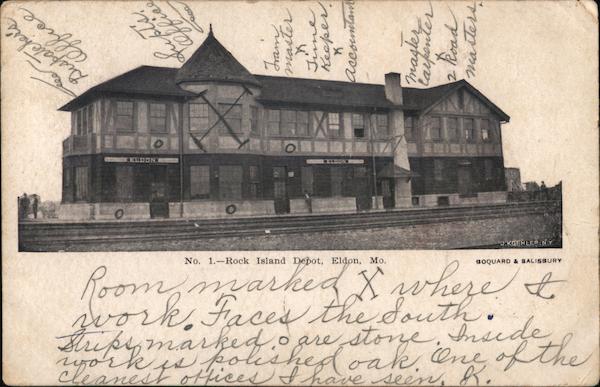 Dispatcher's
Office
Supt's
Office
Train
master
x
Time
Keeper.
x
Accountant
master
carpenter
x
2 Road
masters.
ELDON
ELDON
J. KOEHLER. N.Y.
No. 1.—Rock Island Depot, Eldon, Mo.
BOQUARD & SALISBURY
Room marked X where I
work. Faces the South.
Strips marked o are stone. Inside
work is polished oak. One of the
cleanest offices I have seen. K.